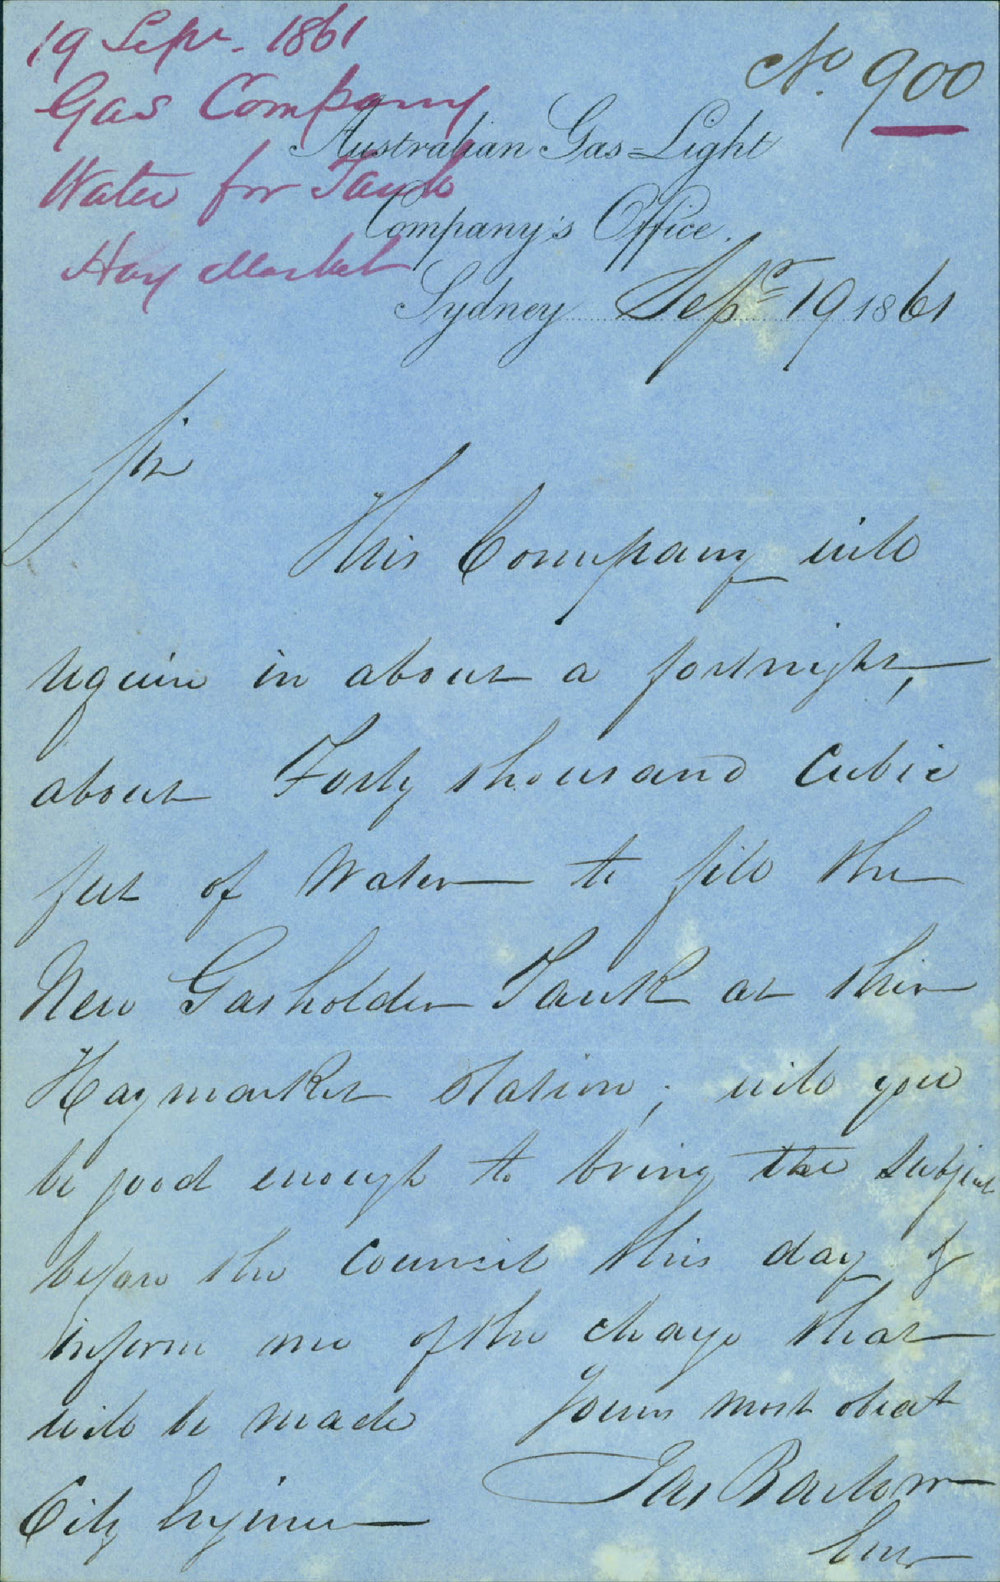 19 Sepr. 1861
Gas Company
Water for Tank
Hay Market
No. 900
Australian Gas=Light
Company's Office.
Sydney Sepr 19 1861
Sir
This Company will
require in about a fortnight,
about Forty thousand Cubic
feet of Water to fill the
New Gasholder Tank at their
Haymarket Station; will you
be good enough to bring the subject
before the Council this day &
inform me of the charge that
will be made Yours most obedt
Jas Barlow
City Engineer
Engr